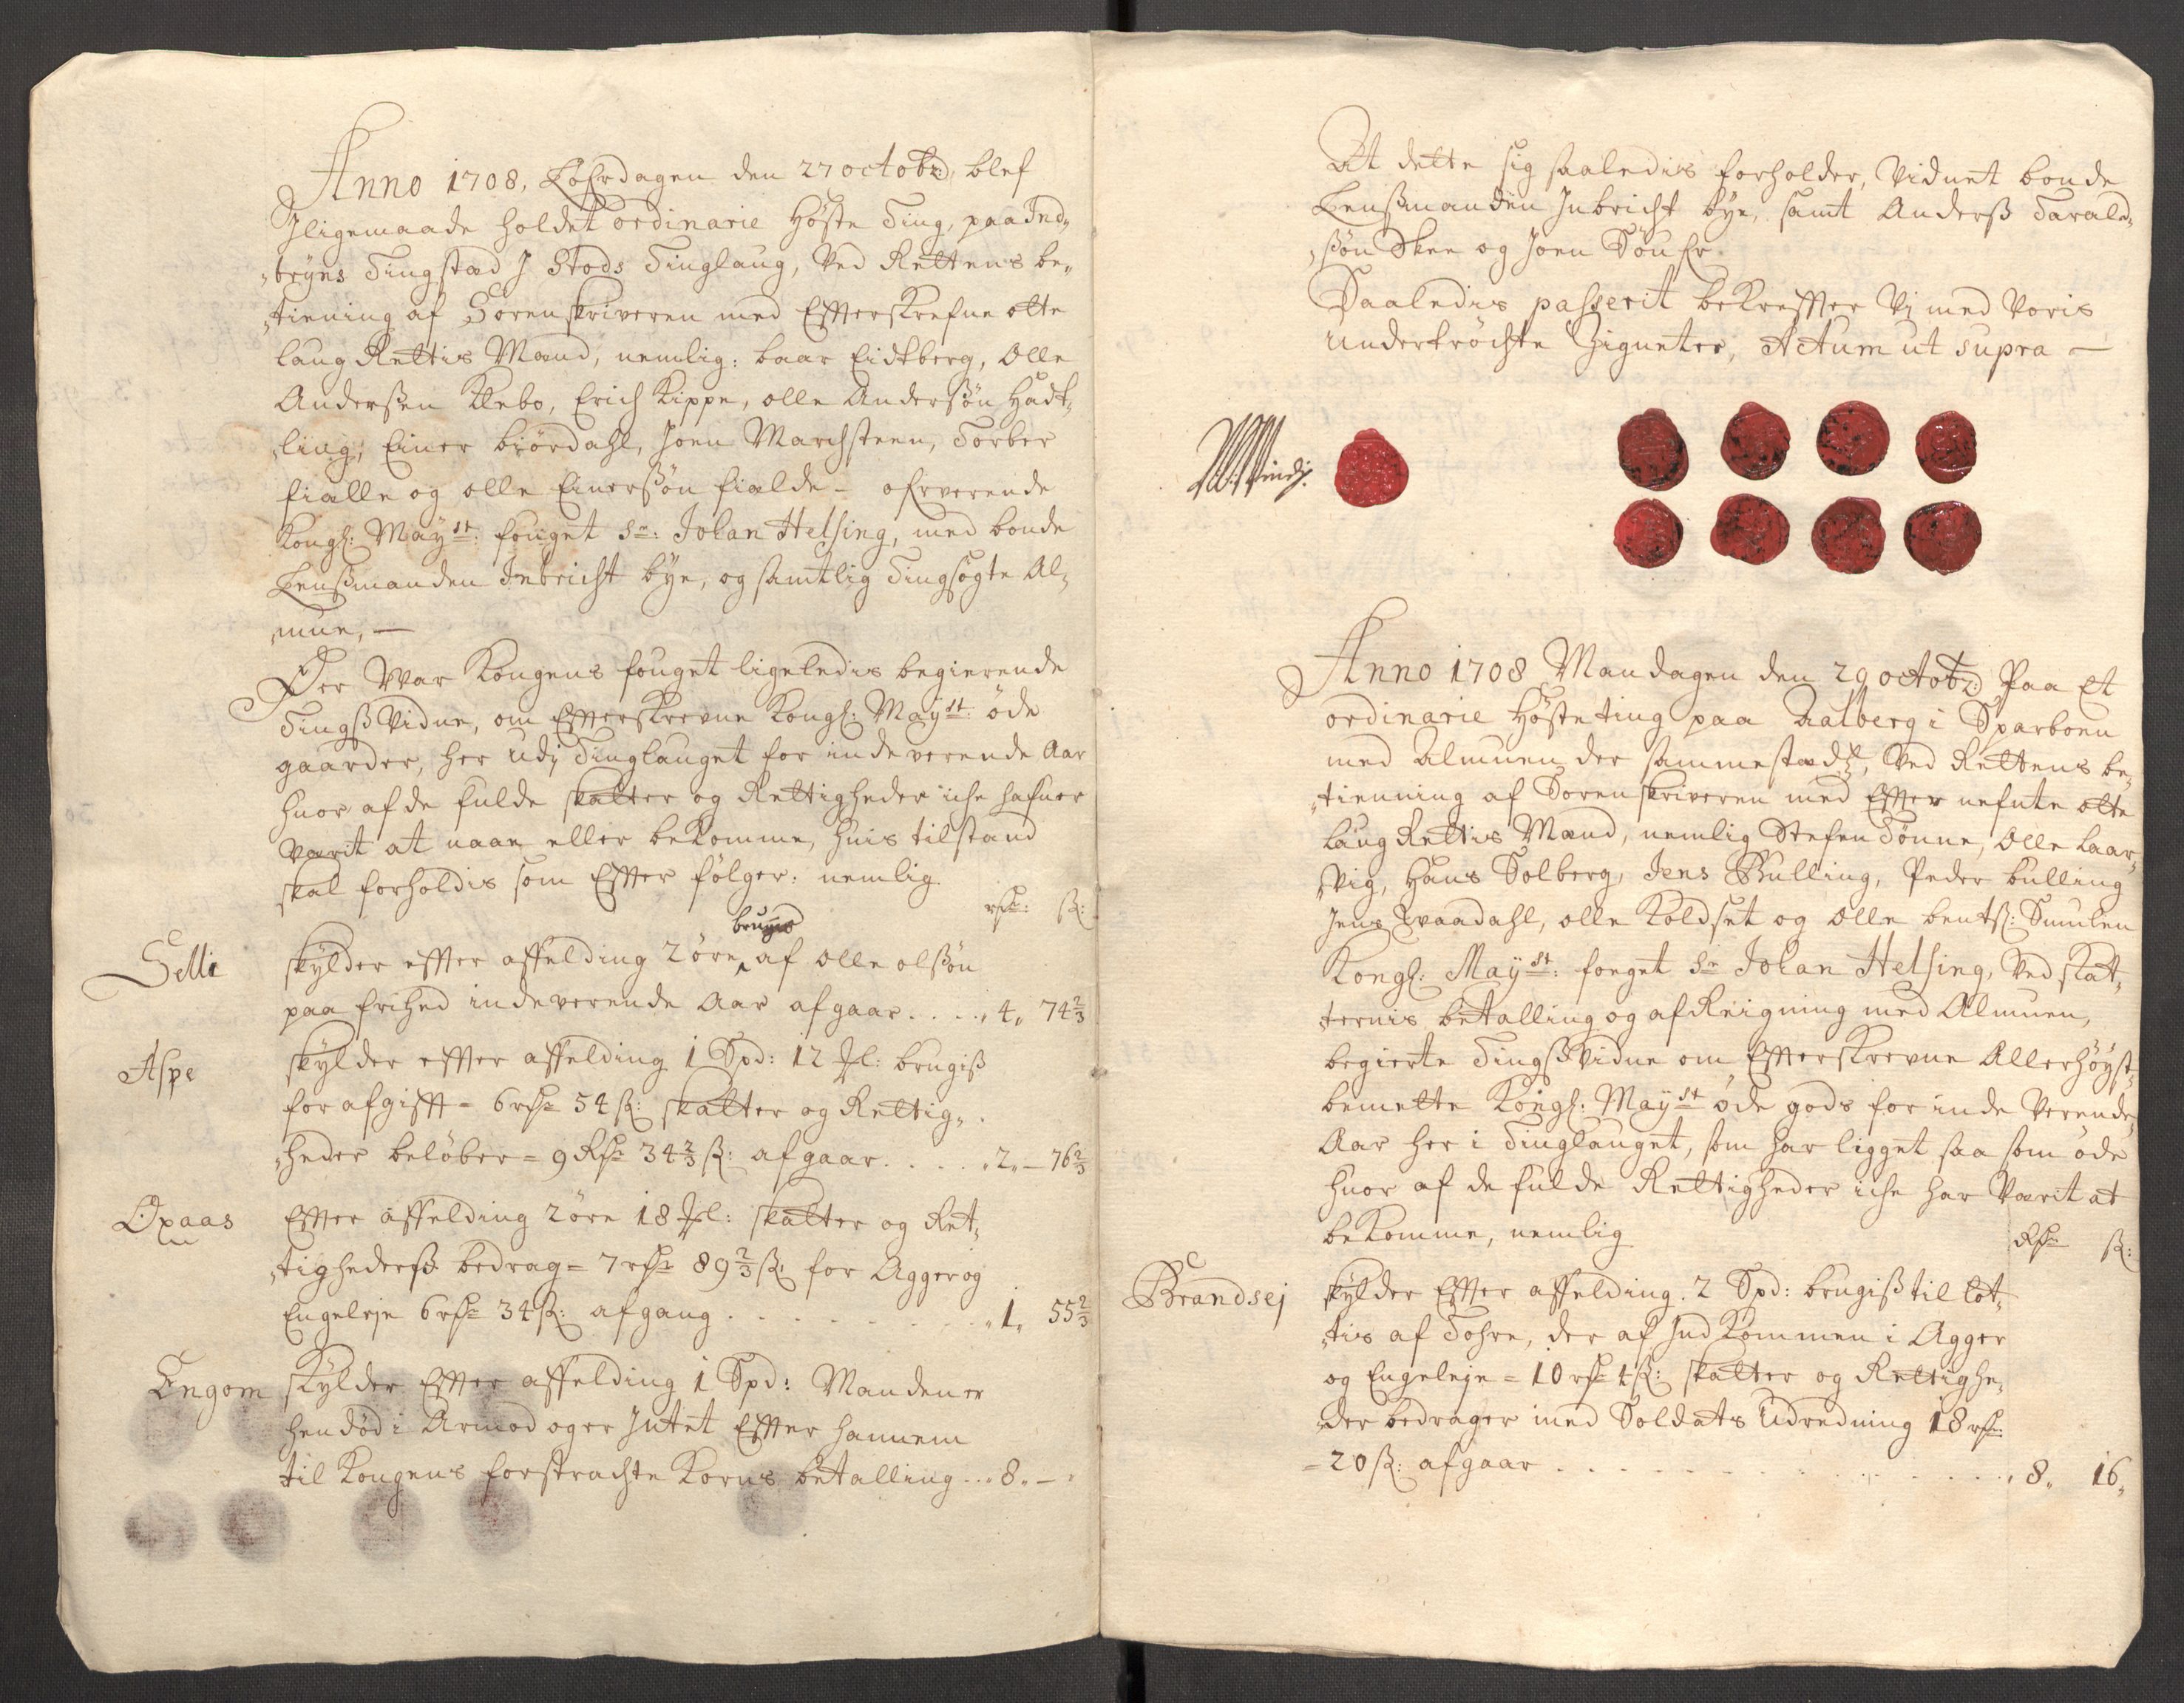 Anno 1708, Løfrdagen den 27 octobr: blef
Jligemaade holdet ordinarie Høste Ting, paa Ind„
„bryns Tingstæd J Stods Tinglaug, Ved Rettens be„
„tiening af Sorenskriveren med Effterskrefne otte
laug Rettis Mænd, nemlig: baar Eidtberg, Olle
Anderßen Klebo, Erich Kippe, olle Anderßøn Hadt„
„ling, Einer biørdahl, Joen Marchsteen, Torber
fialle og olle Einerßøn fialde - ofrverende
Kongl: Mayst: fouget Sr: Johan Helsing, med bonde
Lenßmanden Inbricht bÿe, og samtlig Tingsøgte Al„
„mue, —
Der War Kongens fouget ligeledis begierende
Tingß Vidne, om Effterskrevne Kongl: Mayst: øde
gaarder, her udj Tinglauget for indeverende Aar
huor af de fulde skatter og Rettigheder iche hafuer
Værit at naae eller bekomme, huis tilstand
skal forholdis som Effter følger: nemlig
rdr: ß:
Selli skylder effter affelding 2 øre, brugis af olle olßøn
paa frihed indeverende Aar afgaar . . . . „ 4„ 74 2/3
Aspe skylder effter affelding 1 Spd: 12 Ml: brugiß
for afgifft = 6 rdr 54 ß: skatter og Rettig„
„heder beløber = 9 Rdr 34 2/3 ß: afgaar . . . . „2„ — 76 2/3
Opaas Effter affelding 2 øre 18 Ml: skatter og Ret„
„tighederß bedrag = 7 rdr 89 2/3 ß: for Agger og
Engeleje 6 rdr 34 ß: afgang . . . . . . . . „1„ 55 2/3
Engom skylder Effter affelding 1 Spd: Manden er
hendød i Armod og er Intet Effter hannem
til Kongens forstrachte Korns betalling . . „ 8„ —
At dette sig saaledis forholder, Vidnet bonde
Lenßmanden Inbricht bÿe, samt Anderß Tarald„
„ßøn Skee og Joen Døufr.
Saaledis passerit bekreffter Vj med Voris
undertröchte Zigneter, Actum ut supra —
Anno 1708 Mandagen den 29 octobr: Paa Et
ordinarie Høsteting paa Aalberg i Sparboen
med Almuen der sammestædtz, Ved Rettens be„
„tienning af Sorenskriveren med Effter nefnte otte
laug Rettis Mænd, nemlig Stefen Tønne, Olle Laar„
„Vig, Hans Solberg, Jens Bulling, Peder bulling
Jens Waadahl, olle Koldset og Olle bentß: Smulen
Kongl: Mayst: foeget Sr Johan Helsing, Ved skat„
„ternis betalling og afReigning med Almuen,
begierte Tingß Vidne om Effterskrevne Allerhøyst„
bemelte Kongl: Mayst øde gods for inde Verende
Aar her i Tinglauget, som har ligget saa som øde
huor af de fulde Rettigheder iche har Værit at
bekomme, nemlig
Rdr ß:
Brandsej skylder Effter affelding. 2 Spd: brugiß til lot„
„tis af Tohre, der af Ind Kommen i Agger
og Engeleje = 10 rdr 4 ß: skatter og Rettighe„
„der bedrager med Soldats Udredning 18 rdr:
= 20 ß: afgaar . . . . . . . . . . . . „ 8„ 16„